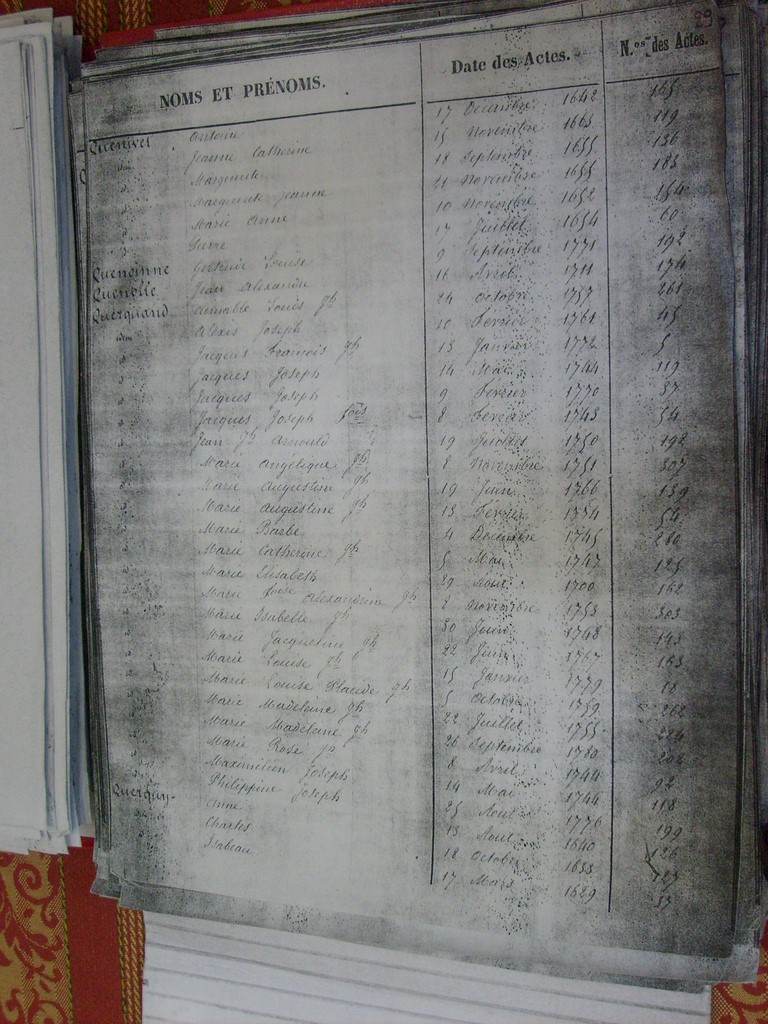 29
NOMS ET PRÉNOMS. Date des Actes. N.os des Actes.
Quenivet Antoine 17 Decembre 1642 165
Jeanne Catherine 15 Novembre 1663 119
Marguerite 18 Septembre 1655 136
Marguerite Jeanne 21 Novembre 1655 183
Marie Anne 10 Novembre 1652 154
Pierre 17 Juillet 1654 60
Louise 9 Septembre 1771 192
Quenolle Jean Alexandre 16 Avril 1711 174
Querquand Aimable Louis Jh 24 octobre 1757 261
idem Alexis Joseph 10 Fevrier 1761 45
Jacques Francois Jh 13 Janvier 1772 5
Jacques Joseph 14 Mai 1744 119
Jacques Joseph 9 Fevrier 1770 37
Jacques Joseph fois 8 Fevrier 1743 54
Jean Arnould 19 Juillet 1750 192
Marie Angelique Jh 8 Novembre 1751 307
Marie Augustine Jh 19 Juin 1766 139
Marie Augustine Jh 13 Fevrier 1754 54
Marie Barbe 4 Decembre 1745 280
Marie Catherine Jh 5 Mai 1747 125
Marie Elisabeth 29 Aout 1700 162
Marie Alexandrine Jh 2 Novembre 1753 303
Marie Isabelle Jh 30 Juin 1748 143
Marie Jacqueline Jh 22 Juin 1767 153
Marie Louise Jh 15 Janvier 1779 18
Marie Louise Placide Jh 5 Octobre 1759 262
Marie Madeleine Jh 22 Juillet 1755 224
Marie Madeleine Jh 26 Septembre 1780 202
Marie Rose Jh 8 Avril 1744 92
Maximilien Joseph 14 Mai 1744 118
Philippine Joseph 25 Aout 1776 199
Querquy Anne 13 Aout 1640 126
Charles 18 Octobre 1633 127
Isabeau 17 Mars 1629 37